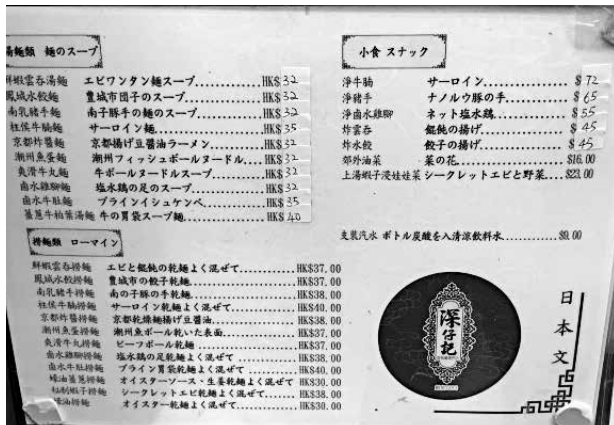 湯麵類 麺のスープ
鮮蝦雲吞湯麵 エビワンタン麺スープ HK$32
鳳城水餃麵 豊城市団子のスープ HK$32
南乳豬手麵 南子豚手の麺のスープ HK$32
柱侯牛腩麵 サーロイン麺 HK$35
京都炸醬麵 京都揚げ豆醤油ラーメン HK$32
潮州魚蛋麵 潮州フィッシュボールヌードル HK$32
爽滑牛丸麵 牛ボールヌードルスープ HK$32
鹵水雞腳麵 塩水鶏の足のスープ HK$32
鹵水牛肚麵 ブラインイシュケンベ HK$35
薑蔥牛柏葉湯麵 牛の胃袋スープ麺 HK$40
撈麵類 ローマイン
鮮蝦雲吞撈麵 エビと餛飩の乾麺よく混ぜて HK$37.00
鳳城水餃撈麵 豊城市の餃子乾麺 HK$37.00
南乳豬手撈麵 南の子豚の手乾麺 HK$38.00
柱侯牛腩撈麵 サーロイン乾麺よく混ぜて HK$40.00
京都炸醬撈麵 京都乾燥麺揚げ豆醤油 HK$38.00
潮州魚蛋撈麵 潮州魚ボール乾いた表面 HK$37.00
爽滑牛丸撈麵 ビーフボール乾麺 HK$37.00
鹵水雞腳撈麵 塩水鶏の足乾麺よく混ぜて HK$38.00
鹵水牛肚撈麵 ブライン胃袋乾麺よく混ぜて HK$40.00
蠔油薑蔥撈麵 オイスターソース・生姜乾麺よく混ぜて HK$30.00
秘制蝦子撈麵 シークレットエビ乾麺よく混ぜて HK$38.00
蠔油撈麵 オイスター乾麺よく混ぜて HK$30.00
小食 スナック
淨牛腩 サーロイン $72
淨豬手 ナノルウ豚の手 $65
淨鹵水雞腳 ネット塩水鶏 $55
炸雲吞 餛飩の揚げ $45
炸水餃 餃子の揚げ $45
郊外油菜 菜の花 $16.00
上湯蝦子浸娃娃菜 シークレットエビと野菜 $23.00
支裝汽水 ボトル炭酸を入清涼飲料水 $9.00
深仔記
日本文